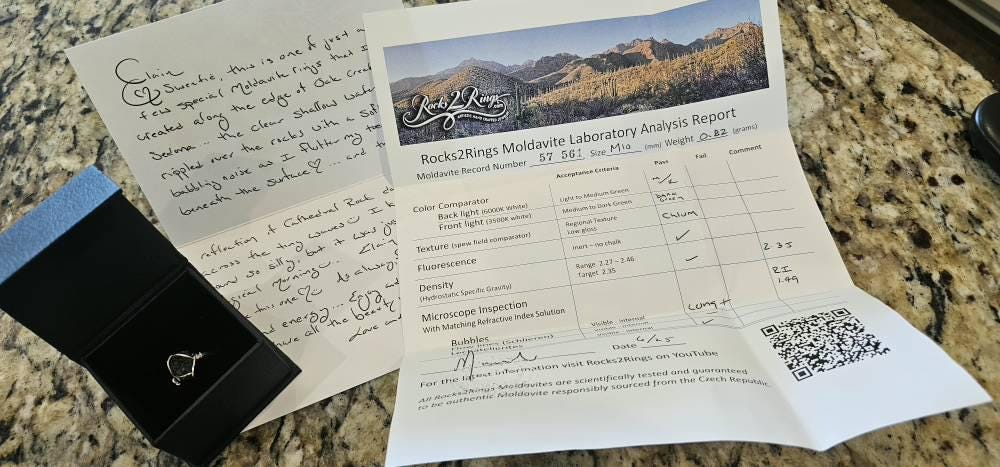 Clair
Sweetie, this is one of just a
few special Moldavite rings that I
created along the edge of Oak Creek
Sedona... the clear shallow water
rippled over the rocks with a soft
babbling noise as I flutter my toes
beneath the surface♡... and th
reflection of Cathedral Rock da
across the tiny waves I k
sound so silly, but it was
magical morning Clair
this one As always
energy... Enjoy and
all the beauty
Love and
Rocks2Rings.com
ARTISTIC HAND CRAFTED JEWELRY
Rocks2Rings Moldavite Laboratory Analysis Report
Moldavite Record Number 57 561 Size M10 (mm) Weight 0.82 (grams)
Acceptance Criteria Pass Fail Comment
Color Comparator
Back light (6000K White) Light to Medium Green m/L
Front light (3500K white) Medium to Dark Green Green
Texture (spew field comparator) Regional Texture Chlum
Low gloss
Fluorescence Inert – no chalk ✓
Density Range 2.27 – 2.46 ✓ 2.35
(Hydrostatic Specific Gravity) Target 2.35
Microscope Inspection RI
With Matching Refractive Index Solution 1.49
Bubbles Visible - internal Lung +
Flow lines (Schlieren) Visible - internal ✓
Lechatelierites Visible - internal
Date 6/25
For the latest information visit Rocks2Rings on YouTube
All Rocks2Rings Moldavites are scientifically tested and guaranteed
to be authentic Moldavite responsibly sourced from the Czech Republic.